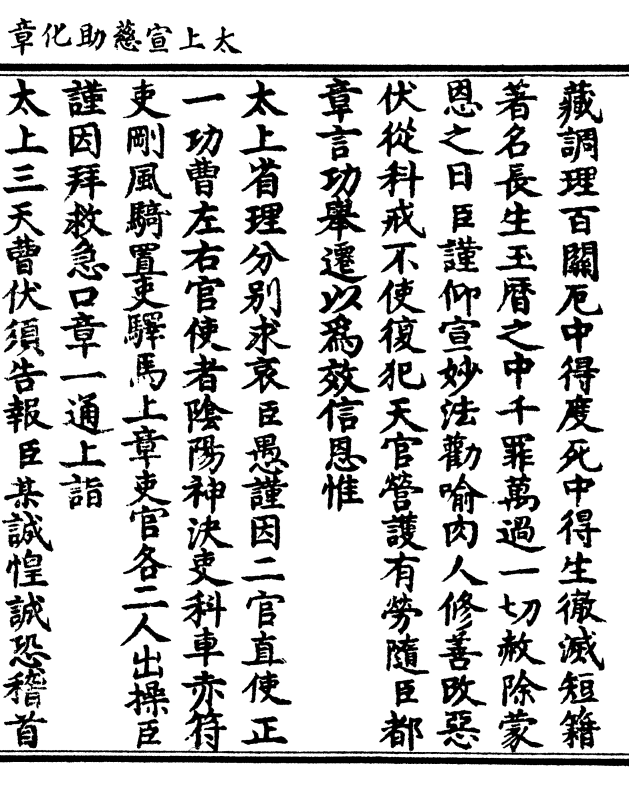 太上宣慈助化章
藏調理百關厄中得度死中得生徹滅短籍
著名長生玉曆之中千罪萬過一切赦除蒙
恩之日臣謹仰宣妙法勸喻肉人修善改惡
伏從科戒不使復犯天官營護有勞隨臣都
章言功舉遷以為效信恩惟
太上省理分別求哀臣愚謹因二官直使正
一功曹左右官使者陰陽神決吏科車赤符
吏剛風騎置吏驛馬上章吏官各二人出操臣
謹因拜救急口章一通上詣
太上三天曹伏須告報臣某誠惶誠恐稽首